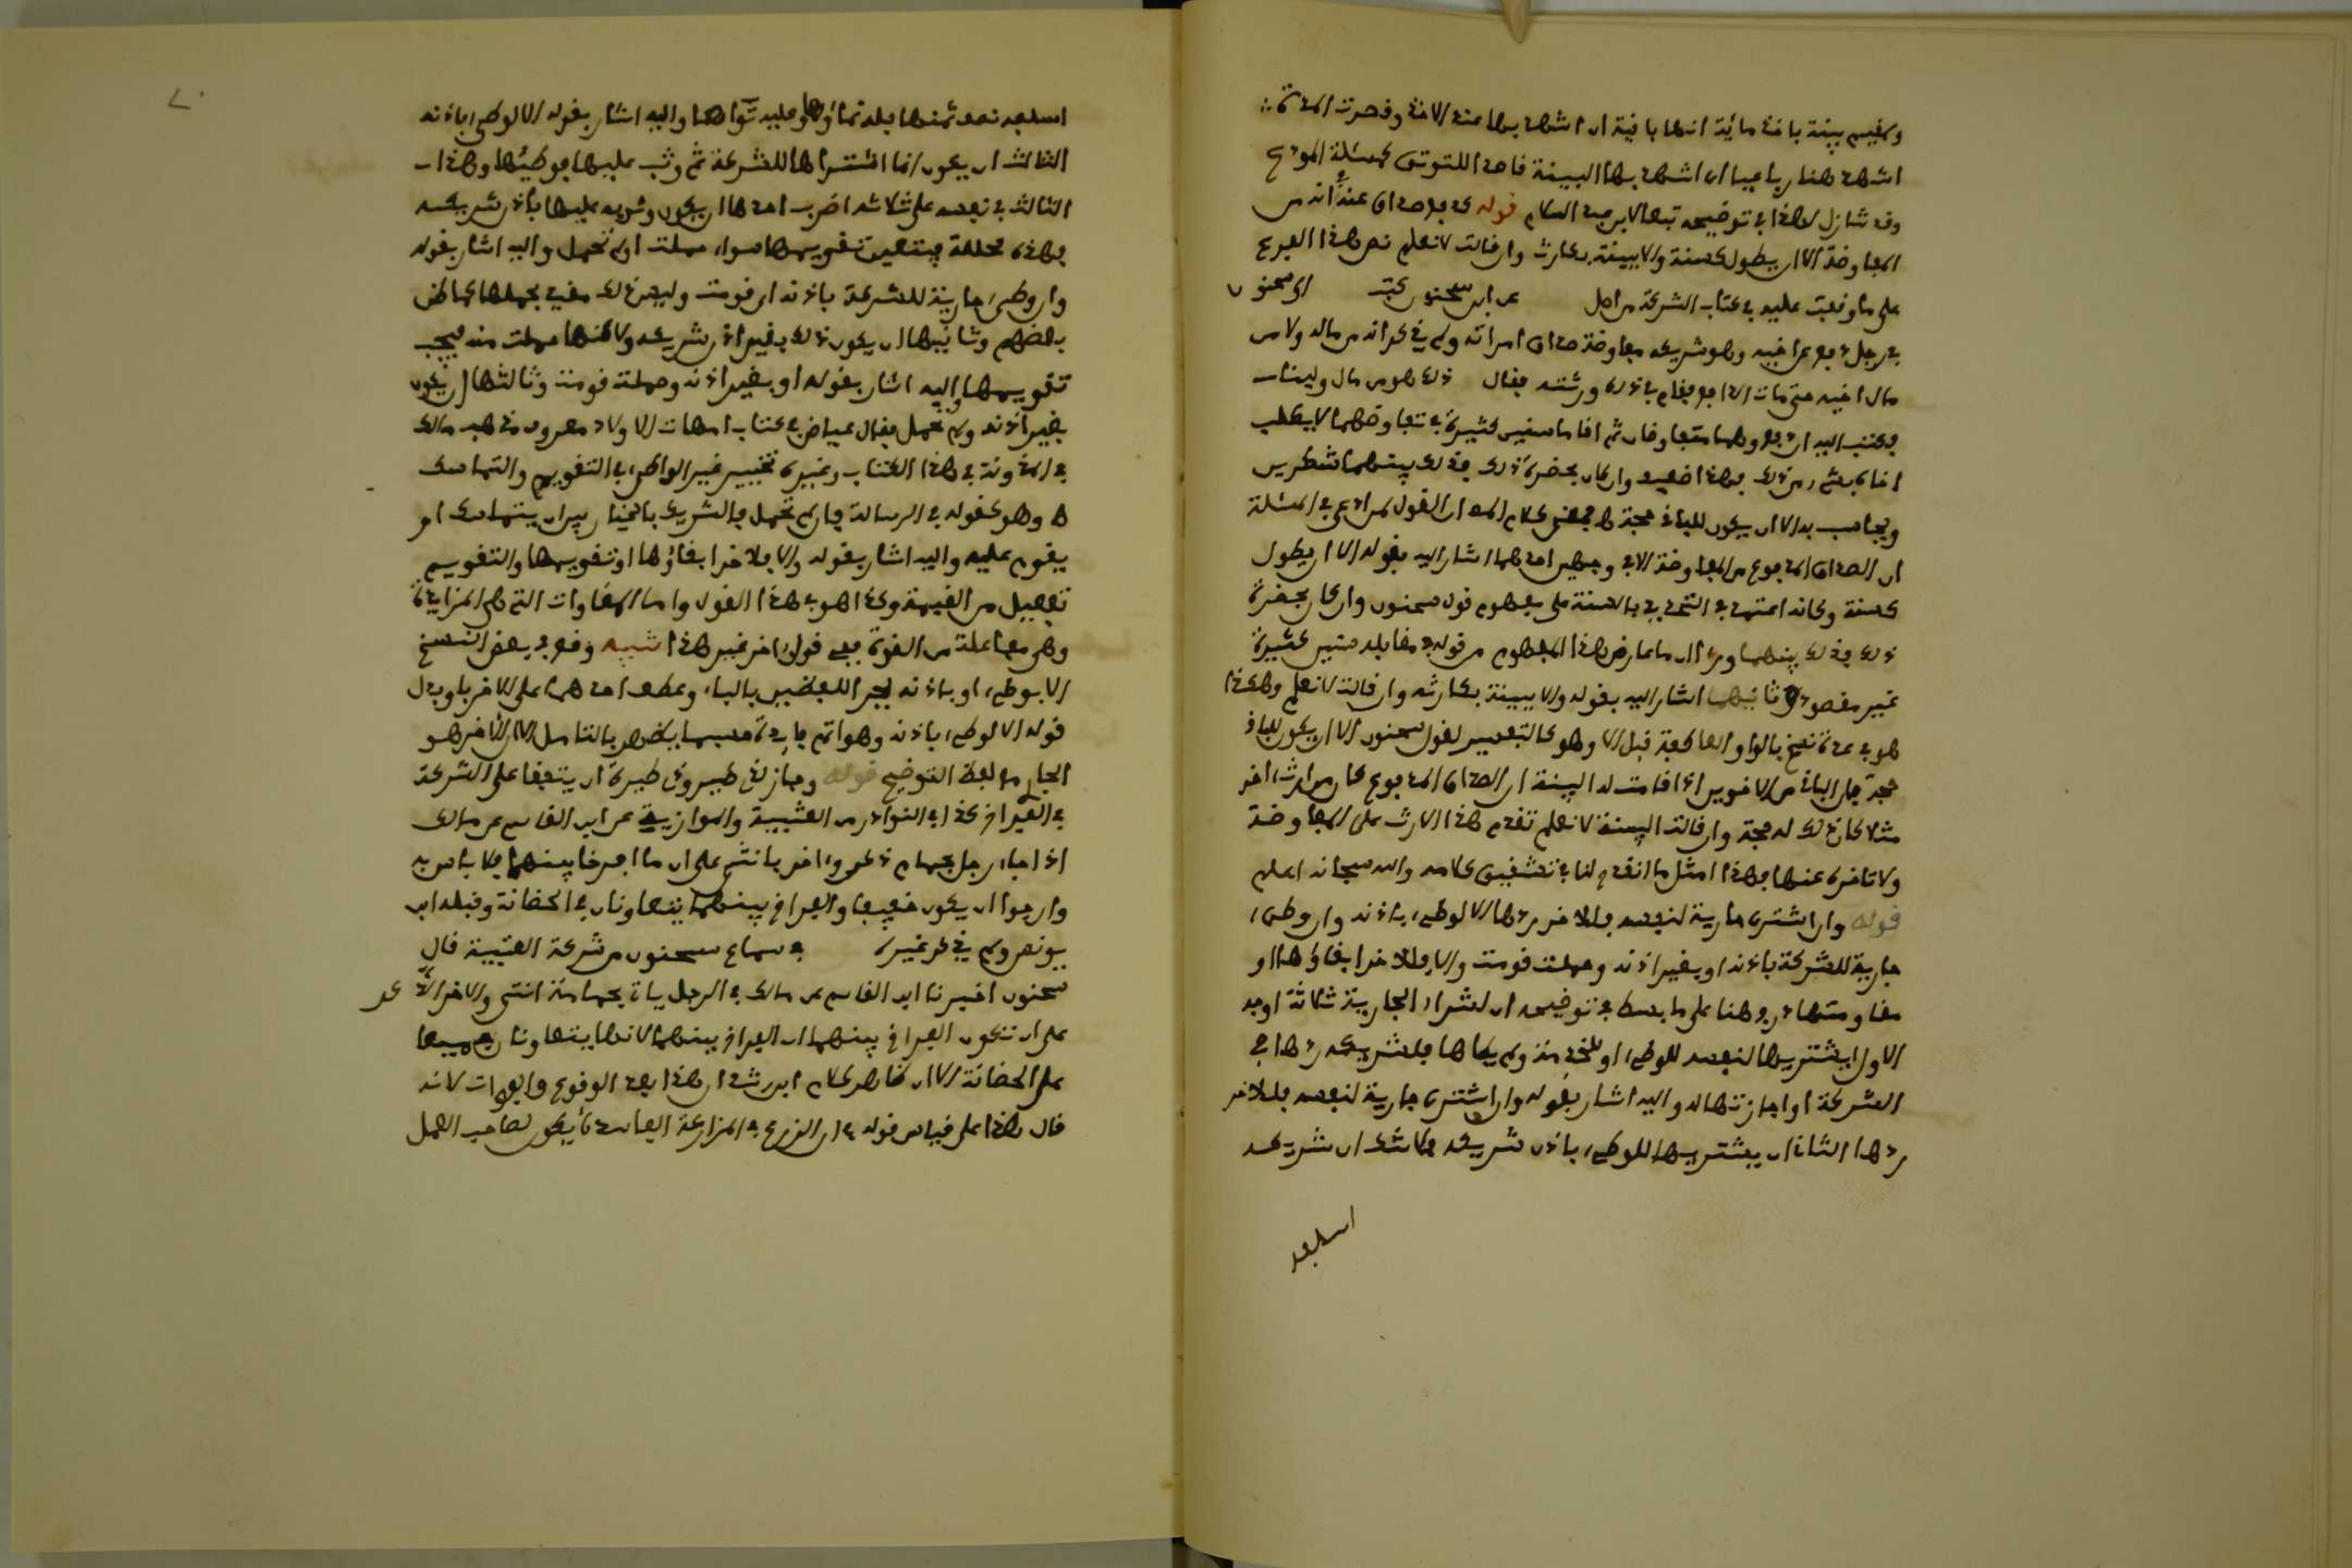 وكمقيم بينة بأخذ مائة انها باقية ان اشهد بها عند الاخذ وقصرت المدة
اشهد هنا رباعيا ان اشهد بها البينة قاصدا للتوثق كمسئلة المودع
وقد تنازل لهذا في توضيحه تبعا لابن عبد السلام قوله كدفع صداق عنه انه من
المفاوضة الا ان يطول كسنة والا ببينة بكارث وان قالت لا نعلم نص هذا الفرع
على ما وقفت عليه في كتاب الشركة من اصل عن ابن سحنون كتب الى سحنون
في رجل دفع عن اخيه وهو شريكه مفاوضة صداق امراته ولم يذكر انه من ماله ولا من
مال اخيه حتى مات الدافع فقام في ذلك ورثته فقال ذلك هو من مال ولينا
فكتب اليه ان دفع وهما متفاوضان ثم اقاما سنين كثيرة في تفاوضهما لا يطلب
اخاه بشيء من ذلك فهذا ضعيف وان كان بحضرة ذلك فذلك بينهما شطرين
ويحاسب به الا ان يكون للباقي حجة فمقتضى كلام
ان الصداق المدفوع من المفاوضة الا في وجهين احدهما اشار اليه بقوله الا ان يطول
كسنة وكانه اعتمد في التحديد بالسنة على مفهوم قول سحنون وان كان بحضرة
ذلك فذلك بينهما وراى ان ما عارض هذا المفهوم من قوله في مقابله سنين كثيرة
غير مقصود وثانيهما اشار اليه بقوله والا ببينة بكارثه وان قالت لا نعلم وهكذا
هو في عدة نسخ بالواو العاطفة قبل الا وهو كالتفسير لقول سحنون الا ان يكون للباقي
حجة فان الباقي من الاخوين اذا اقامت له البينة ان الصداق المدفوع كان من ارث اخر
مثلا كان ذلك له حجة وان قالت البينة لا نعلم تقدم هذا الارث على المفاوضة
ولا تاخره عنها فهذا امثل ما انقدح لنا في تشقيق كلامه والله سبحانه اعلم
قوله وان اشترى جارية لنفسه فللاخر ردها الا لوطء باذنه وان وطئ
جارية للشركة باذنه او بغير اذنه وحملت قومت والا فللاخر ابقاؤها او
مقاومتها درج هنا على ما بسط في توضيحه ان لشراء الجارية ثلاثة اوجه
الاول ان يشتريها لنفسه للوطء او للخدمة ولم يطاها فلشريكه ردها في
الشركة او اجازتها له واليه اشار بقوله وان اشترى جارية لنفسه فللاخر
ردها الثاني ان يشتريها للوطء باذن شريكه فلا شك ان شريكه
اسلفه
اسلفه نصف ثمنها فله نماؤها وعليه تواها واليه اشار بقوله الا لوطء باذنه
الثالث ان يكون انما اشتراها للشركة ثم وثب عليها فوطئها وهذا
الثالث في نفسه على ثلاثة اضرب احدها ان يكون وثوبه عليها باذن شريكه
فهذه محللة فيتعين تقويمها سواء حملت او لم تحمل واليه اشار بقوله
وان وطئ جارية للشركة باذنه اي قومت وليس ذلك مقيد بحملها كما ظن
بعضهم وثانيها ان يكون ذلك بغير اذن شريكه ولاكنها حملت منه فيجب
تقويمها واليه اشار بقوله او بغير اذنه وحملت قومت وثالثها ان يكون
بغير اذنه ولم تحمل فقال عياض في كتاب امهات الاولاد معروف مذهب مالك
في المدونة في هذا الكتاب وغيره تخيير غير الواطئ في التقويم والتماسك
اه وهو كقوله في الرسالة فان لم تحمل فالشريك بالخيار بين ان يتماسك او
يقوم عليه واليه اشار بقوله والا فللاخر ابقاؤها او تقويمها والتقويم
تفعيل من القيمة وكذا هو في هذا القول واما المقاوات التي هي المزايدة
وهي مفاعلة من القوة ففي قول اخر غير هذا تنبيه وقع في بعض النسخ
الا بوطء او باذنه بجر اللفظين بالباء وعطف احدهما على الاخر باو بدل
قوله الا لوطء باذنه وهو اتم فايدة حسبما يظهر بالتامل الا ان الاخر هو
الجاري مع لفظ التوضيح قوله وجاز لذي طير وذي طيرة ان يتفقا على الشركة
في الفراخ كذا في النوادر من العتبية والموازية عن ابن القاسم عن مالك
اذا جاء رجل بحمام ذكر واخر بانثى على ان ما افرخا بينهما فلا باس به
وارجوا ان يكون خفيفا والفراخ بينهما يتعاونان في الحضانة وقبله ابن
يونس ولم يذكر غيره في سماع سحنون من شركة العتبية قال
سحنون اخبرنا ابن القاسم عن مالك في الرجل ياتي بحمامة انثى والاخر الاي ذكر
على ان تكون الفراخ بينهما ان الفراخ بينهما لانهما يتعاونان جميعا
على الحضانة الا ان ظاهر كلام ابن رشد ان هذا بعد الوقوع والفوات لانه
قال هذا على قياس قوله في ان الزرع في المزارعة الفاسدة يكون لصاحب العمل